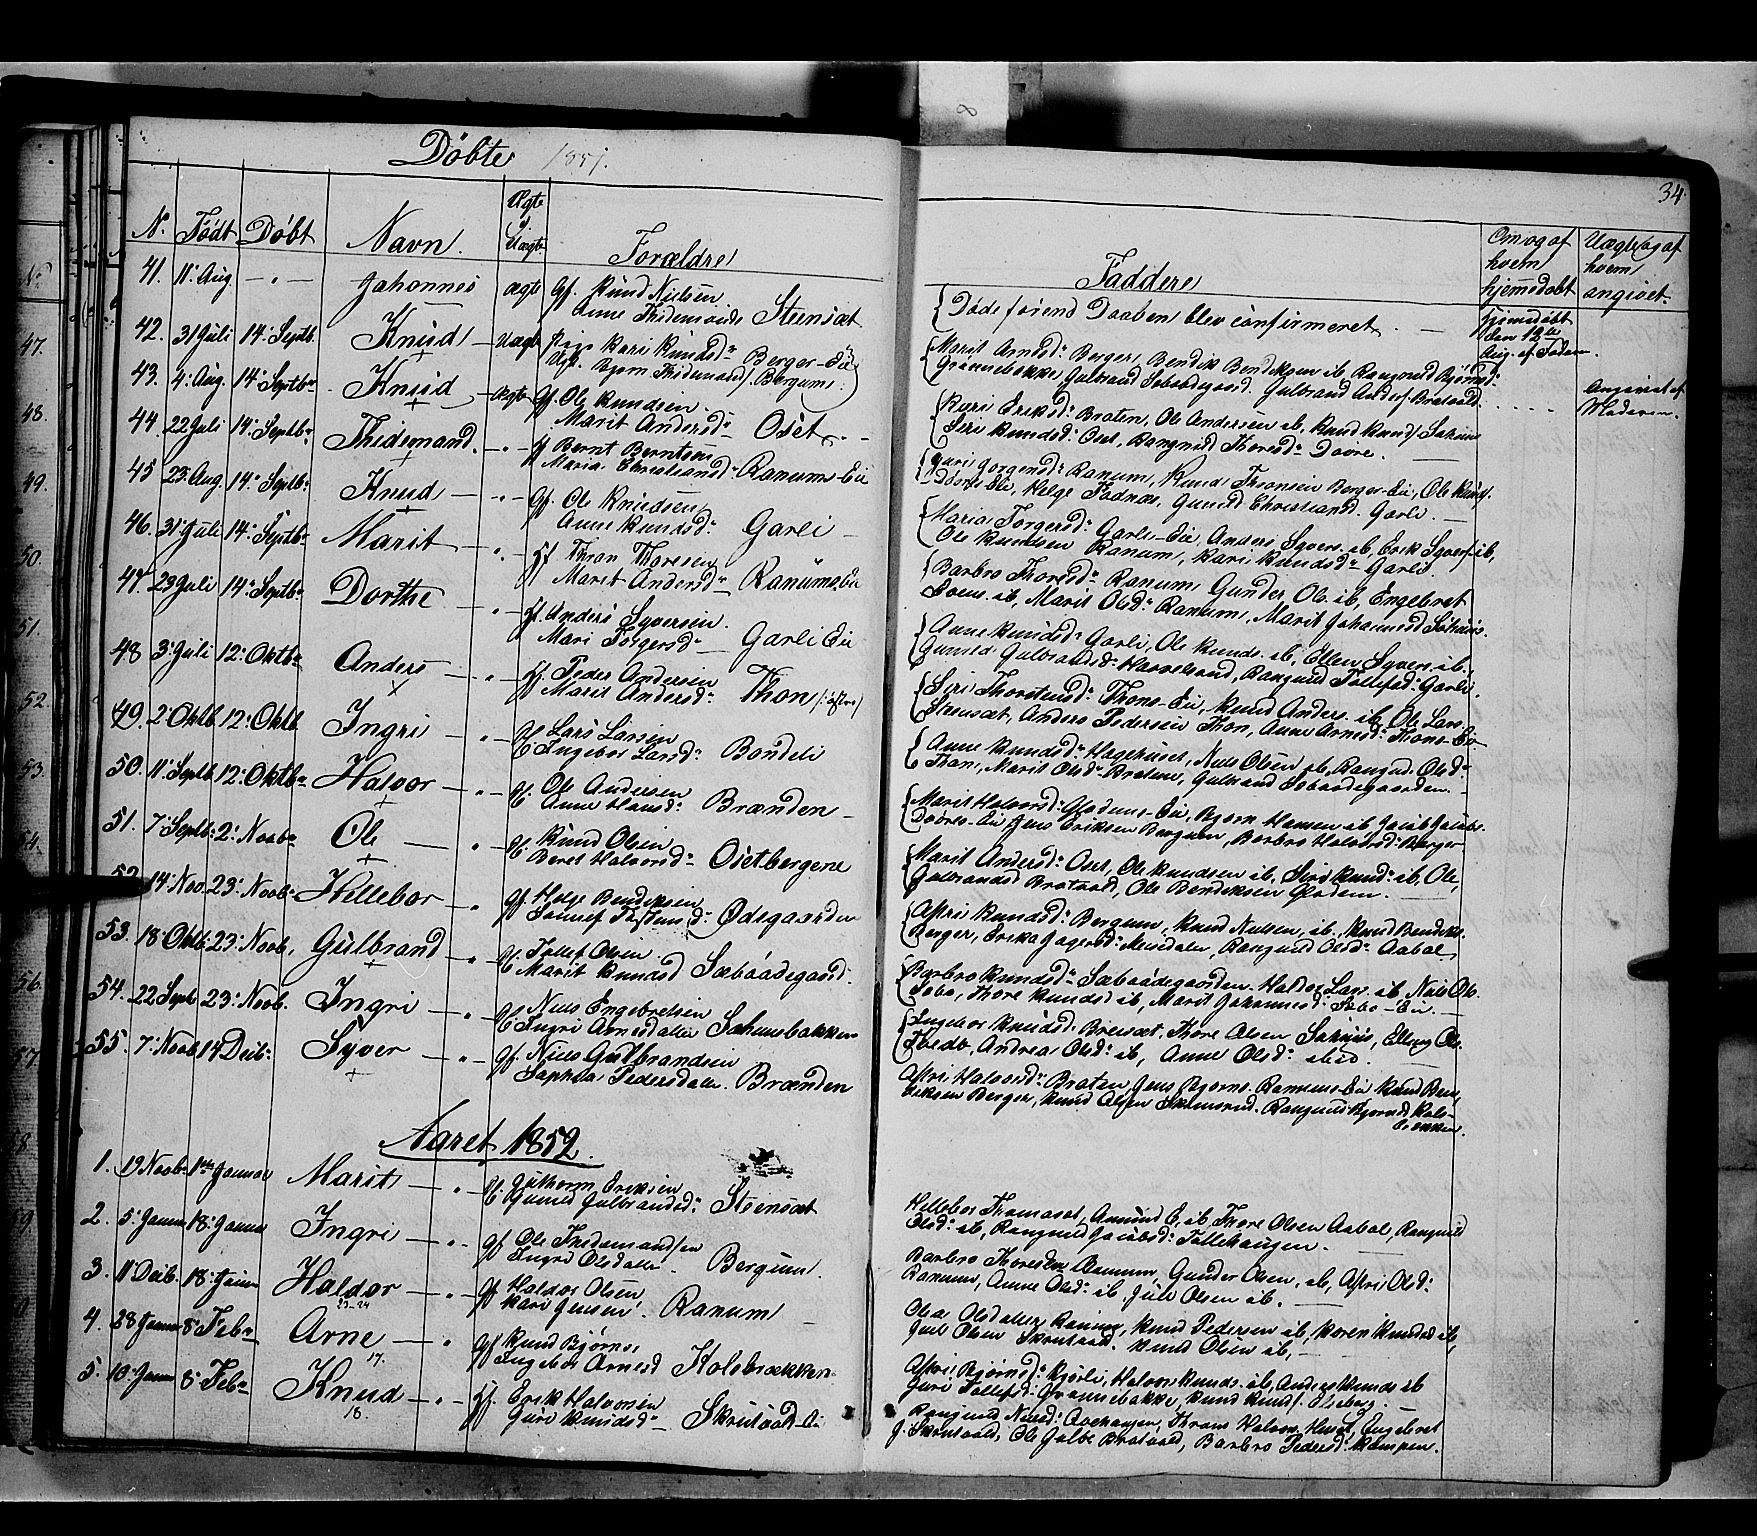 Døbte 1851.
34
No. Født Døbt Navn. Ægte o. Uægte Forældre
Faddere Om og af hvem hjemedøbt Uægte og af hvem angivet.
41. 11 Aug. — " — Johannes ægte Gf. Knud Nielsen
Anne Thidemandsd. Steensæt
Døde førend Daaben blev confirmeret.
hjemedøbt den 12te Aug. af Faderen.
42. 31 Juli 14. Septb. Knud Uægte Pige Kari Knudsd. Berger-Eie
Ugk. Bjørn Thidemands. Bergum
Marit Arnesd. Berger, Bendik Bendiksen ib, Rangnild Bjørnsd.
Grønnebakke, Gulbrand Sebaadegaard. Gulbrand Anders. Brataald.
Angivet af Moderen.
43. 4. Aug. 14 Septbr Knud Ægte Gf. Ole Knudsen
Marit Andersd. Oset
Kari Eriksd. Braten, Ole Andersen ib, Knud Knuds.
Siri Knudsd. Oset, Rangnild Thoresd.
44. 22 Juli 14. Septbr Thidemand. — " — Gf Bernt Berntsen
Maria Christiansd. Ranum-Eie
Guri Jørgensd. Ranum, Knud Thronsen Berger-Eie, Ole Knuds.
Helge Fodnæs, Gunild Christiansd. Garli.
45 23. Aug. 14. Septbr Knud — " — Gf. Ole Knudsen
Anne Knudsd. Garli
Maria Torgersd. Garli-Eie, Anders Syvers. ib, Erik Syvers. ib,
Ole Knudsen Ranum, Kari Knudsd. Garli.
46. 31. Juli 14. Septbr Marit — " — Gf Thron Thoresen
Marit Andersd. Ranums Eie
Barbro Thoresd. Ranum, Gunder Ols. ib, Engebret
Evens. ib, Marit Olsd. Ranum, Marit Johannesd
47. 23 Juli 14. Septbr Dorthe — " — Gf. Anders Syversen
Mari Torgersd. Garli Eie
Anne Knudsd. Garli, Ole Knuds. ib, Ellen Syvers. ib.
Gunild Gulbrandsd. Rangnild Tollefsd. Garli.
48 3. Juli 12. Oktbr Anders — " — Gf. Peder Andersen
Marit Andersd. Thon (østre)
Siri Thorstensd. Thons-Eie, Knud Anders. ib, Ole Lars.
Steensæt, Anders Pedersen Thon, Anne Arnesd. Thons-Eie
49. 2. Oktb. 12. Oktb. Ingri — " — Gf Lars Larsen
Ingebor Larsd. Bondeli
Anne Knudsd. Hagehuset, Niels Olsen ib, Rangnd. Olsd.
Thon, Marit Olsd. Braten, Gulbrand Sebaadegaarden.
50. 11. Septb. 12. Oktbr Halvor — " — Gf. Ole Andersen
Anne Hansd. Brænden
Marit Halvorsd. Glodens-Eie, Bjørn Hansen ib, Jacob Jacobs.
Jens Eriksen Bergum, Barbro Halvorsd. Berger
51. 7. Septb. 2. Novbr Ole — " — Gf. Knud Olsen
Beret Halvorsd. Osetbergene
Marit Andersd. Oset, Ole Knudsen ib, Siri Knudsd. ib, Ole
Gulbrandsd Brataad, Ole Bendiksen Glodem.
52 14. Nov. 23. Novb. Hellebor — " — Gf. Helge Bendiksen
Ødegaarden
Astri Knudsd. Bergum, Knud Nielsen ib, Knud Bendiks.
Berger, Rangnild Olsd. Aabal
53. 18. Oktb. 23. Novb. Gulbrand — " — Gf. Tollef Olsen
Marit Knudsd Sæbaadegaard.
Barbro Knudsd. Sæbaadegaarden. Haldor Lars. ib, Niels Ols.
Sebo, Thore Knudsd ib, Marit Johannesd. Sebo-Eie.
54. 22 Septb 23. Novb. Ingri — " — Gf. Niels Engebretsen
Ingri Arnesdatter Sehuusbakken
Ingebor Knudsd. Breisæt, Thore Olsen Elling Ols.
Ibedo, Andrea Olsd. ib, Anne Olsd. ibid.
55. 7. Novb 14 Decb. Syver — " — Gf. Niels Gulbrandsen
Sophia Pedersdatter. Brænden
Astri Halvorsd. Braten, Jens Bjørns. Ranums-Eie Knud Ben-
diksen Berger, Knud Olsen Rangnild Bjørnsd Kole-
brækken.
Aaret 1852.
1. 19 Novb. 1ste Januar Marit — " — Gf. Guthorm Eriksen
Gunild Gulbrandsd. Steensæt
Hellebor Thomaset, Amund E. ib, Thore Olsen Aabal, Rangnild
Olsd. ib, Rangnild Jacobsd. Tollehaugen.
2. 5. Januar 18. Januar Ingri — " — Gf Ole Thidemandsen
Ingri Olsdatter Bergum.
Barbro Thoresdtr Ranum, Gunder Olsen ib, Astri Olsd.
Ranum, Anne Olsd. ib, Juli Olsen ib.
3. 11. Decb. 18. Januar Haldor — " — Gf Haldor Olsen
23-24
Kari Jensen. Ranum
Olea Olsdatter Ranum, Knud Pedersen ib, Karen Knudsd ib,
Juel Olsen Skrutvold. Knud Olsen ib,
4. 28 Januar 8. Febr Arne — " Gf Knud Bjørns.
17.
Ingebor Arnesd Kolebrækken
Astri Bjørnsd. Kjørli, Halvor Knuds. ib, Anders Knuds ib
Guri Tollefsd. Grønnebakke, Knud Knuds. Elsberg.
5. 10. Januar 8. Febr Knud — " — Gf. Erik Halvorsen
18.
Guri Knudsd. Skrutvold-Eie
Rangnild Nielsd. Aaehaugen, Thron Halvors. Huset, Engebret
J. Skrutvold, Ole Gulbr Brataald, Barbro Pedersd. Kampen.